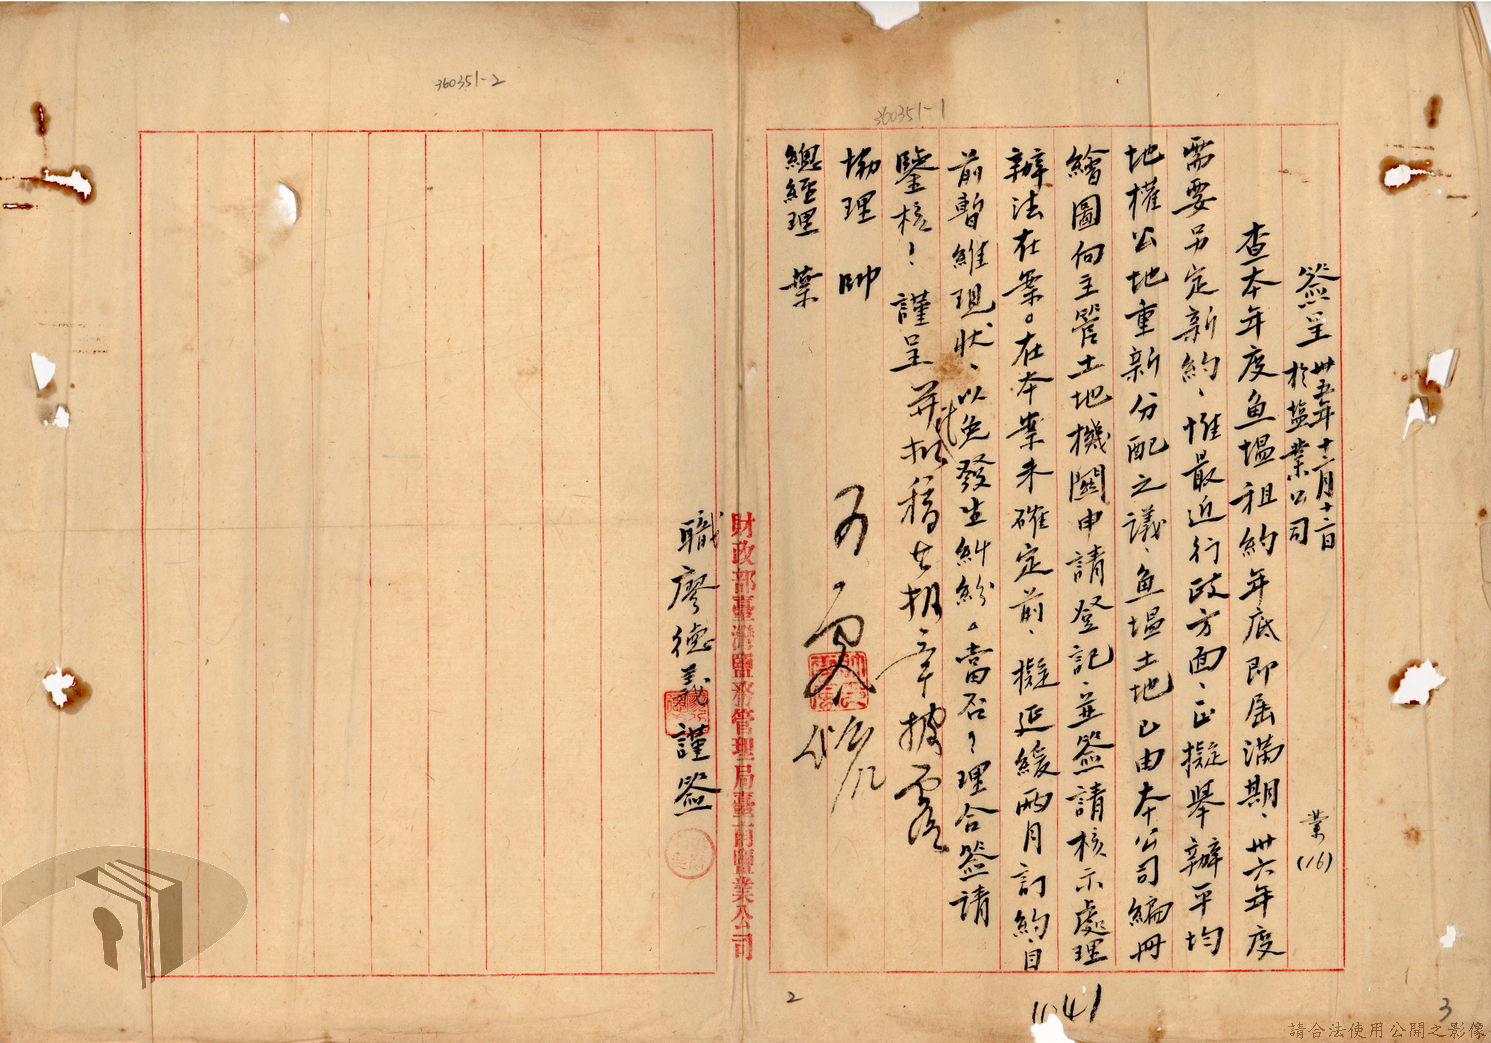 360351-1
簽呈 卅五年十二月十二日
於塩業公司
業(16)
查本年度魚塭租約年底即屆滿期、卅六年度
需要另定新約、惟最近行政方面、正擬舉辦平均
地權公地重新分配之議、魚塭土地已由本公司編冊
繪圖向主管土地機關申請登記、並簽請核示處理
辦法在案。在本案未確定前、擬延緩兩月訂約、目
前暫維現狀、以免發生糾紛。當否？理合簽請
鑒核！謹呈
協理 帥
總經理 葉
1041
2
3
財政部臺灣鹽務管理局臺南鹽業公司
360351-2
職廖德義謹簽
請合法使用公開之影像